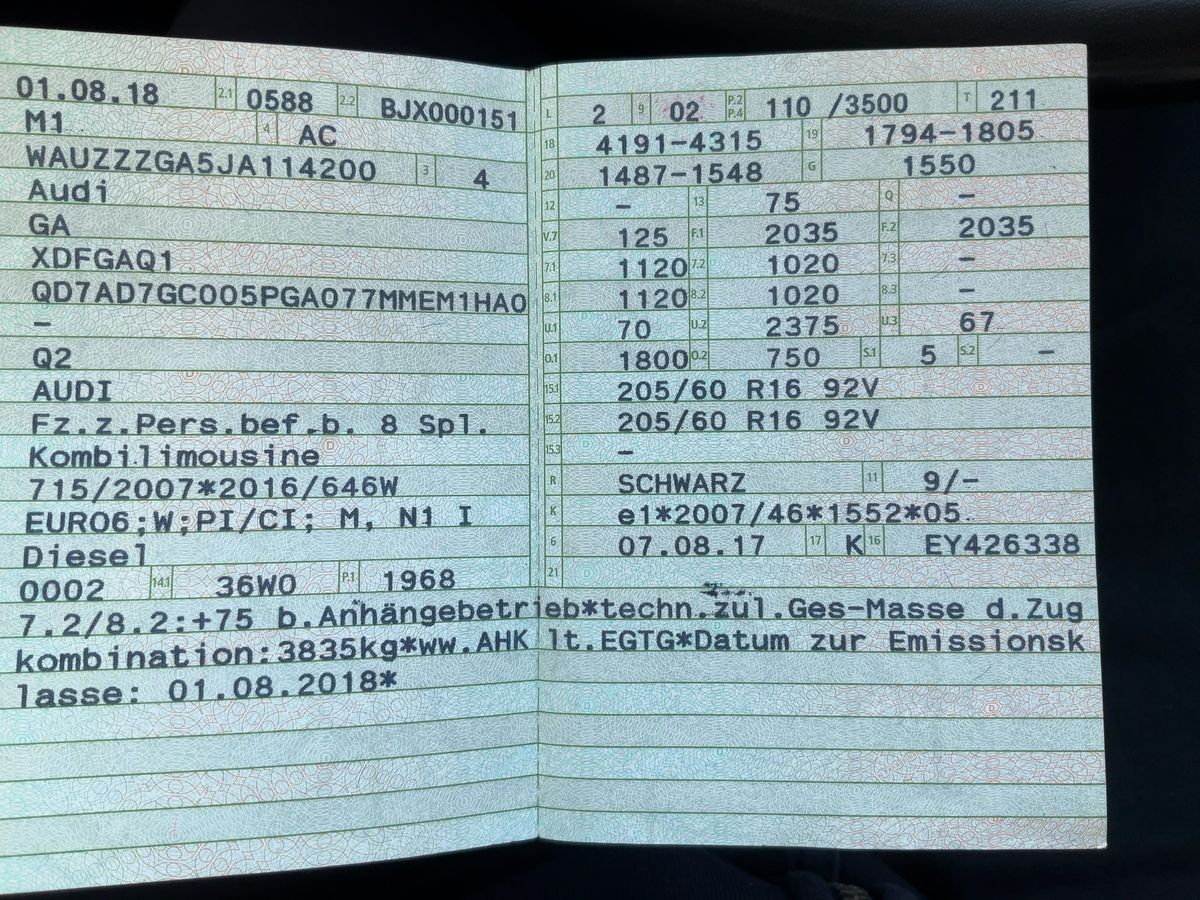 01.08.18 2.1 0588 2.2 BJX000151
M1 4 AC
WAUZZZGA5JA114200 3 4
Audi
GA
XDFGAQ1
QD7AD7GC005PGA077MMEM1HA0
–
Q2
AUDI
Fz.z.Pers.bef.b. 8 Spl.
Kombilimousine
715/2007*2016/646W
EURO6;W;PI/CI; M, N1 I
Diesel
0002 14.1 36W0 P.1 1968
L 2 9 02 P.2 P.4 110 /3500 T 211
18 4191-4315 19 1794-1805
20 1487-1548 G 1550
12 – 13 75 Q –
V.7 125 F.1 2035 F.2 2035
7.1 1120 7.2 1020 7.3 –
8.1 1120 8.2 1020 8.3 –
U.1 70 U.2 2375 U.3 67
O.1 1800 O.2 750 S.1 5 S.2 –
15.1 205/60 R16 92V
15.2 205/60 R16 92V
15.3 –
R SCHWARZ 11 9/–
K e1*2007/46*1552*05
6 07.08.17 17 K 16 EY426338
21
7.2/8.2:+75 b.Anhängebetrieb*techn.zul.Ges-Masse d.Zug
kombination:3835kg*ww.AHK lt.EGTG*Datum zur Emissionsk
lasse: 01.08.2018*